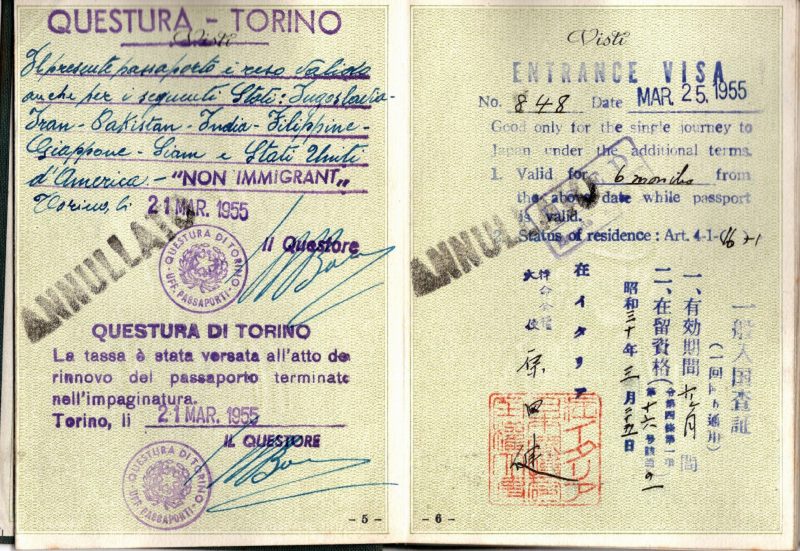 QUESTURA - TORINO
Visti
Il presente passaporto è reso valido
anche per i seguenti Stati: Jugoslavia-
Iran-Pakistan-India-Filippine-
Giappone-Siam e Stati Uniti
d'America - "NON IMMIGRANT"
Torino, li 21 MAR. 1955
Il Questore
ANNULLATO
QUESTURA DI TORINO
UFF. PASSAPORTI
QUESTURA DI TORINO
La tassa è stata versata all'atto de
rinnovo del passaporto terminato
nell'impaginatura.
Torino, li 21 MAR. 1955
IL QUESTORE
QUESTURA DI TORINO
UFF. PASSAPORTI
- 5 -
Visti
ENTRANCE VISA
No. 848 Date MAR. 25. 1955
Good only for the single journey to
Japan under the additional terms.
1. Valid for 6 months from
the above date while passport
is valid.
2. Status of residence: Art. 4-1-16-1
ANNULLATO
一般入国査証
(一回限り通用)
一、有効期間 六ヶ月間
二、在留資格
昭和三十年三月二十五日
在イタリア
特命全権
大使 原田健
- 6 -